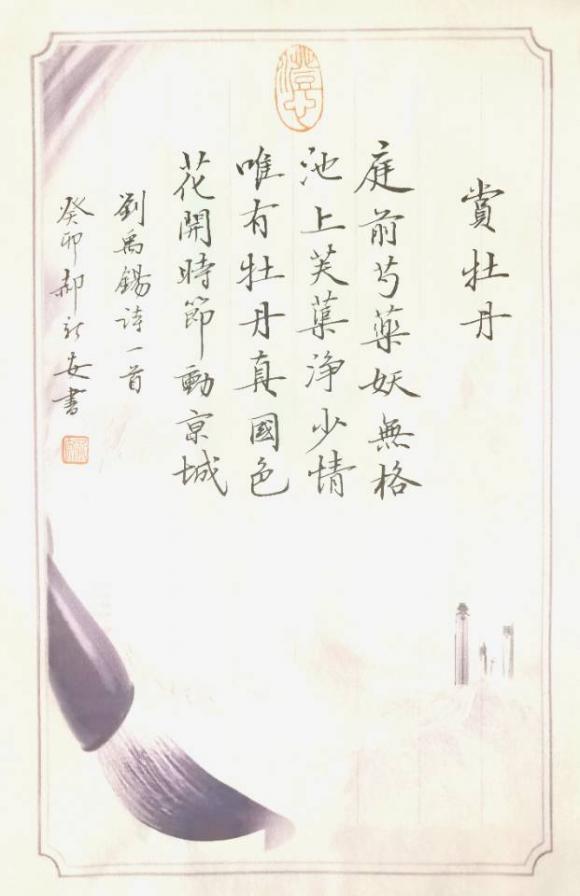 賞牡丹
庭前芍藥妖無格
池上芙蕖淨少情
唯有牡丹真國色
花開時節動京城
劉禹錫詩一首
癸卯郝新安書
澄心